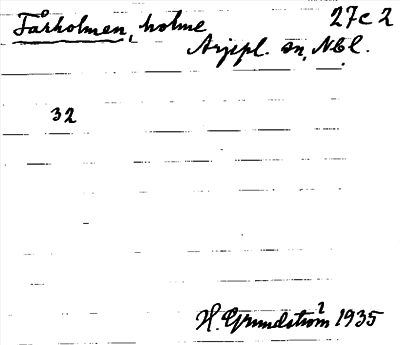 Fårholmen, holme 27c2
Arjepl. sn, Nbl.
32
H. Grundström 1935